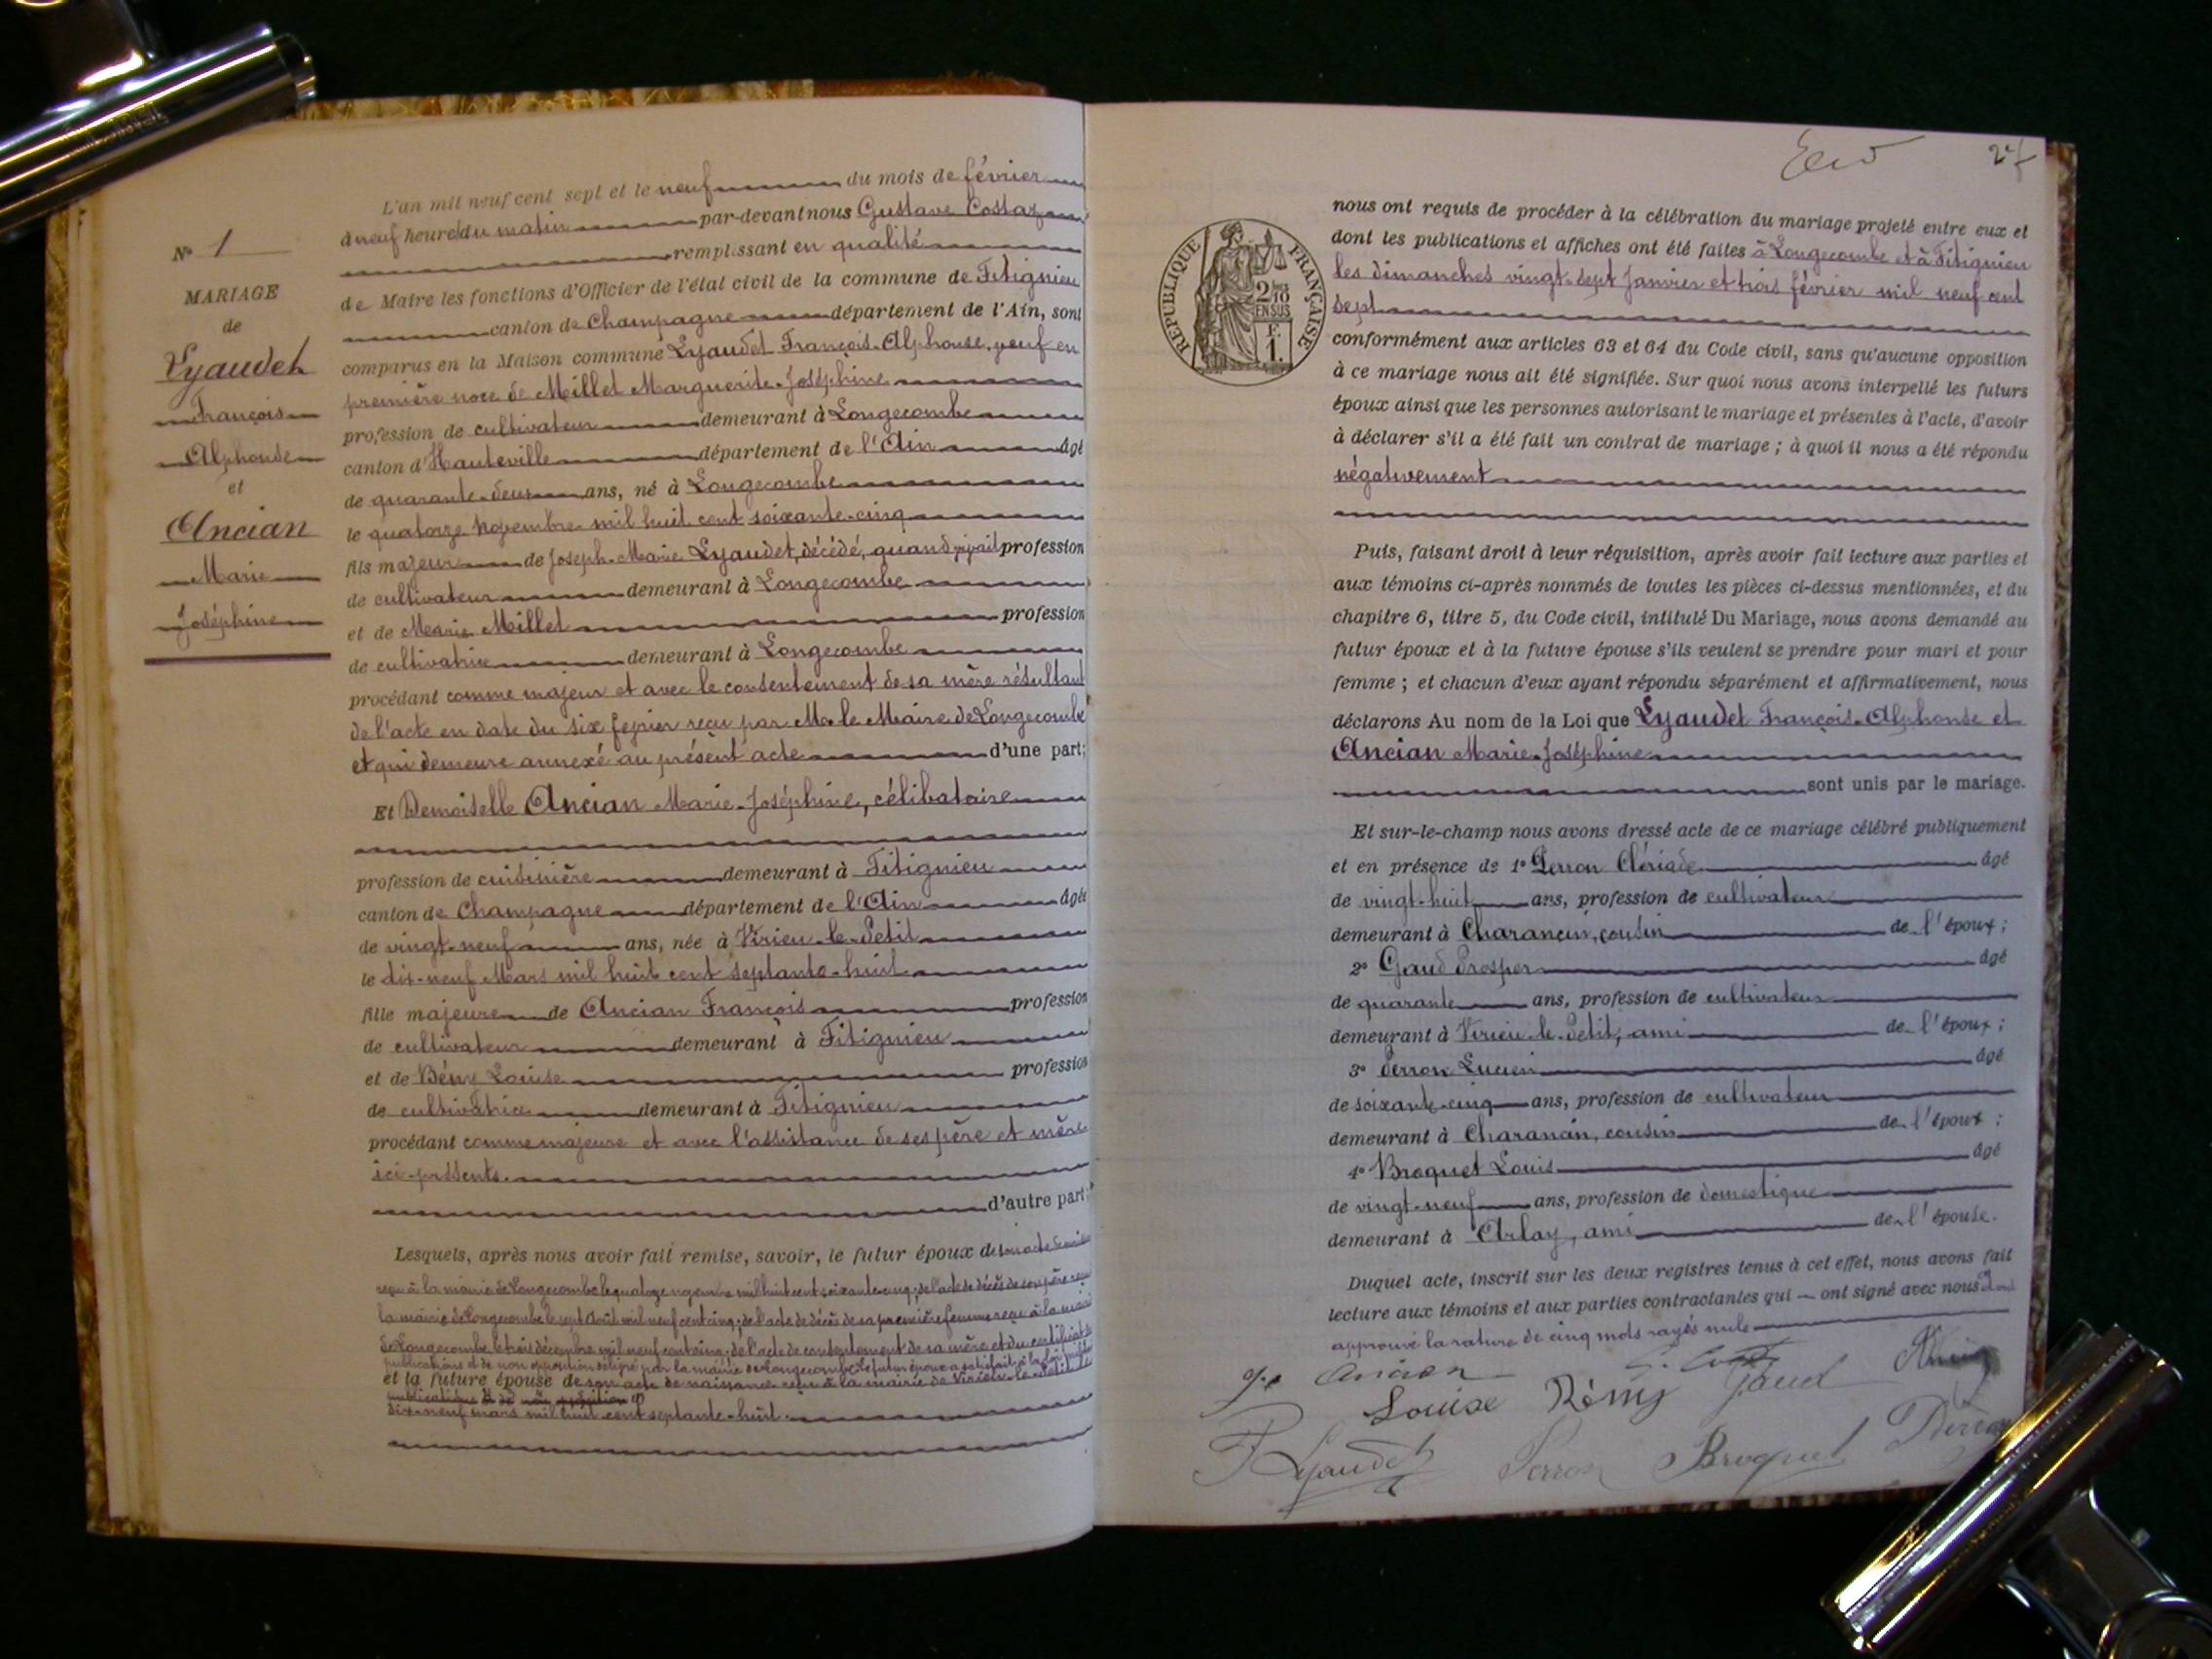 L'an mil neuf cent sept et le neuf du mois de février
à neuf heures du matin par-devant nous Gustave Costaz
remplissant en qualité
de Maire les fonctions d'Officier de l'état civil de la commune de Fitignieu
canton de Champagne département de l'Ain, sont
comparus en la Maison commune Lyaudet François-Alphonse, veuf en
première noce de Millet Marguerite-Joséphine
profession de cultivateur demeurant à Longecombe
canton d'Hauteville département de l'Ain âgé
de quarante-deux ans, né à Longecombe
le quatorze Novembre mil huit cent soixante-cinq
fils majeur de Joseph-Marie Lyaudet, décédé, quand vivait profession
de cultivateur demeurant à Longecombe
et de Marie Millet profession
de cultivatrice demeurant à Longecombe
procédant comme majeur et avec le consentement de sa mère résultant
de l'acte en date du six février reçu par M. le Maire de Longecombe
et qui demeure annexé au présent acte d'une part;
Et Demoiselle Ancian Marie-Joséphine, célibataire
profession de cuisinière demeurant à Fitignieu
canton de Champagne département de l'Ain âgée
de vingt-neuf ans, née à Virieu-le-Petit
le dix-neuf Mars mil huit cent septante-huit
fille majeure de Ancian François profession
de cultivateur demeurant à Fitignieu
et de Louise profession
de cultivatrice demeurant à Fitignieu
procédant comme majeure et avec l'assistance de ses père et mère
ici présents.
d'autre part;
Lesquels, après nous avoir fait remise, savoir, le futur époux de son acte de naissance
reçu à la mairie de Longecombe le quatorze novembre mil huit cent soixante-cinq; de l'acte de décès de son père reçu
la mairie de Longecombe le sept Août mil neuf cent cinq; de l'acte de décès de sa première femme reçu à la mairie
de Longecombe le trois décembre mil neuf cent cinq; de l'acte de consentement de sa mère et du certificat de
publications et de non opposition délivré par la mairie de Longecombe le futur époux a satisfait à la loi
et la future épouse de son acte de naissance reçu à la mairie de Virieu-le-Petit le
publications et de non opposition
dix-neuf mars mil huit cent septante-huit.
N° 1
MARIAGE
de
Lyaudet
François
Alphonse
et
Ancian
Marie
Joséphine
27
RÉPUBLIQUE FRANÇAISE
2/10
EN SUS
F.
1.
nous ont requis de procéder à la célébration du mariage projeté entre eux et
dont les publications et affiches ont été faites à Longecombe et à Fitignieu
les dimanches vingt-sept Janvier et trois février mil neuf cent
sept
conformément aux articles 63 et 64 du Code civil, sans qu'aucune opposition
à ce mariage nous ait été signifiée. Sur quoi nous avons interpellé les futurs
époux ainsi que les personnes autorisant le mariage et présentes à l'acte, d'avoir
à déclarer s'il a été fait un contrat de mariage; à quoi il nous a été répondu
négativement
Puis, faisant droit à leur réquisition, après avoir fait lecture aux parties et
aux témoins ci-après nommés de toutes les pièces ci-dessus mentionnées, et du
chapitre 6, titre 5, du Code civil, intitulé Du Mariage, nous avons demandé au
futur époux et à la future épouse s'ils veulent se prendre pour mari et pour
femme; et chacun d'eux ayant répondu séparément et affirmativement, nous
déclarons Au nom de la Loi que Lyaudet François-Alphonse et
Ancian Marie-Joséphine
sont unis par le mariage.
Et sur-le-champ nous avons dressé acte de ce mariage célébré publiquement
et en présence de 1° Perron Cériade âgé
de vingt-huit ans, profession de cultivateur
demeurant à Charancin, cousin de l'époux;
2° Gaud Prosper âgé
de quarante ans, profession de cultivateur
demeurant à Virieu-le-Petit, ami de l'époux;
3° Perron Lucien âgé
de soixante-cinq ans, profession de cultivateur
demeurant à Charancin, cousin de l'époux;
4° Broquet Louis âgé
de vingt-neuf ans, profession de domestique
demeurant à Arlay, ami de l'épouse.
Duquel acte, inscrit sur les deux registres tenus à cet effet, nous avons fait
lecture aux témoins et aux parties contractantes qui ont signé avec nous
approuvé la rature de cinq mots rayés nuls
Ancian
Louise Rémy Gaud
F Lyaudet Perron Broquet